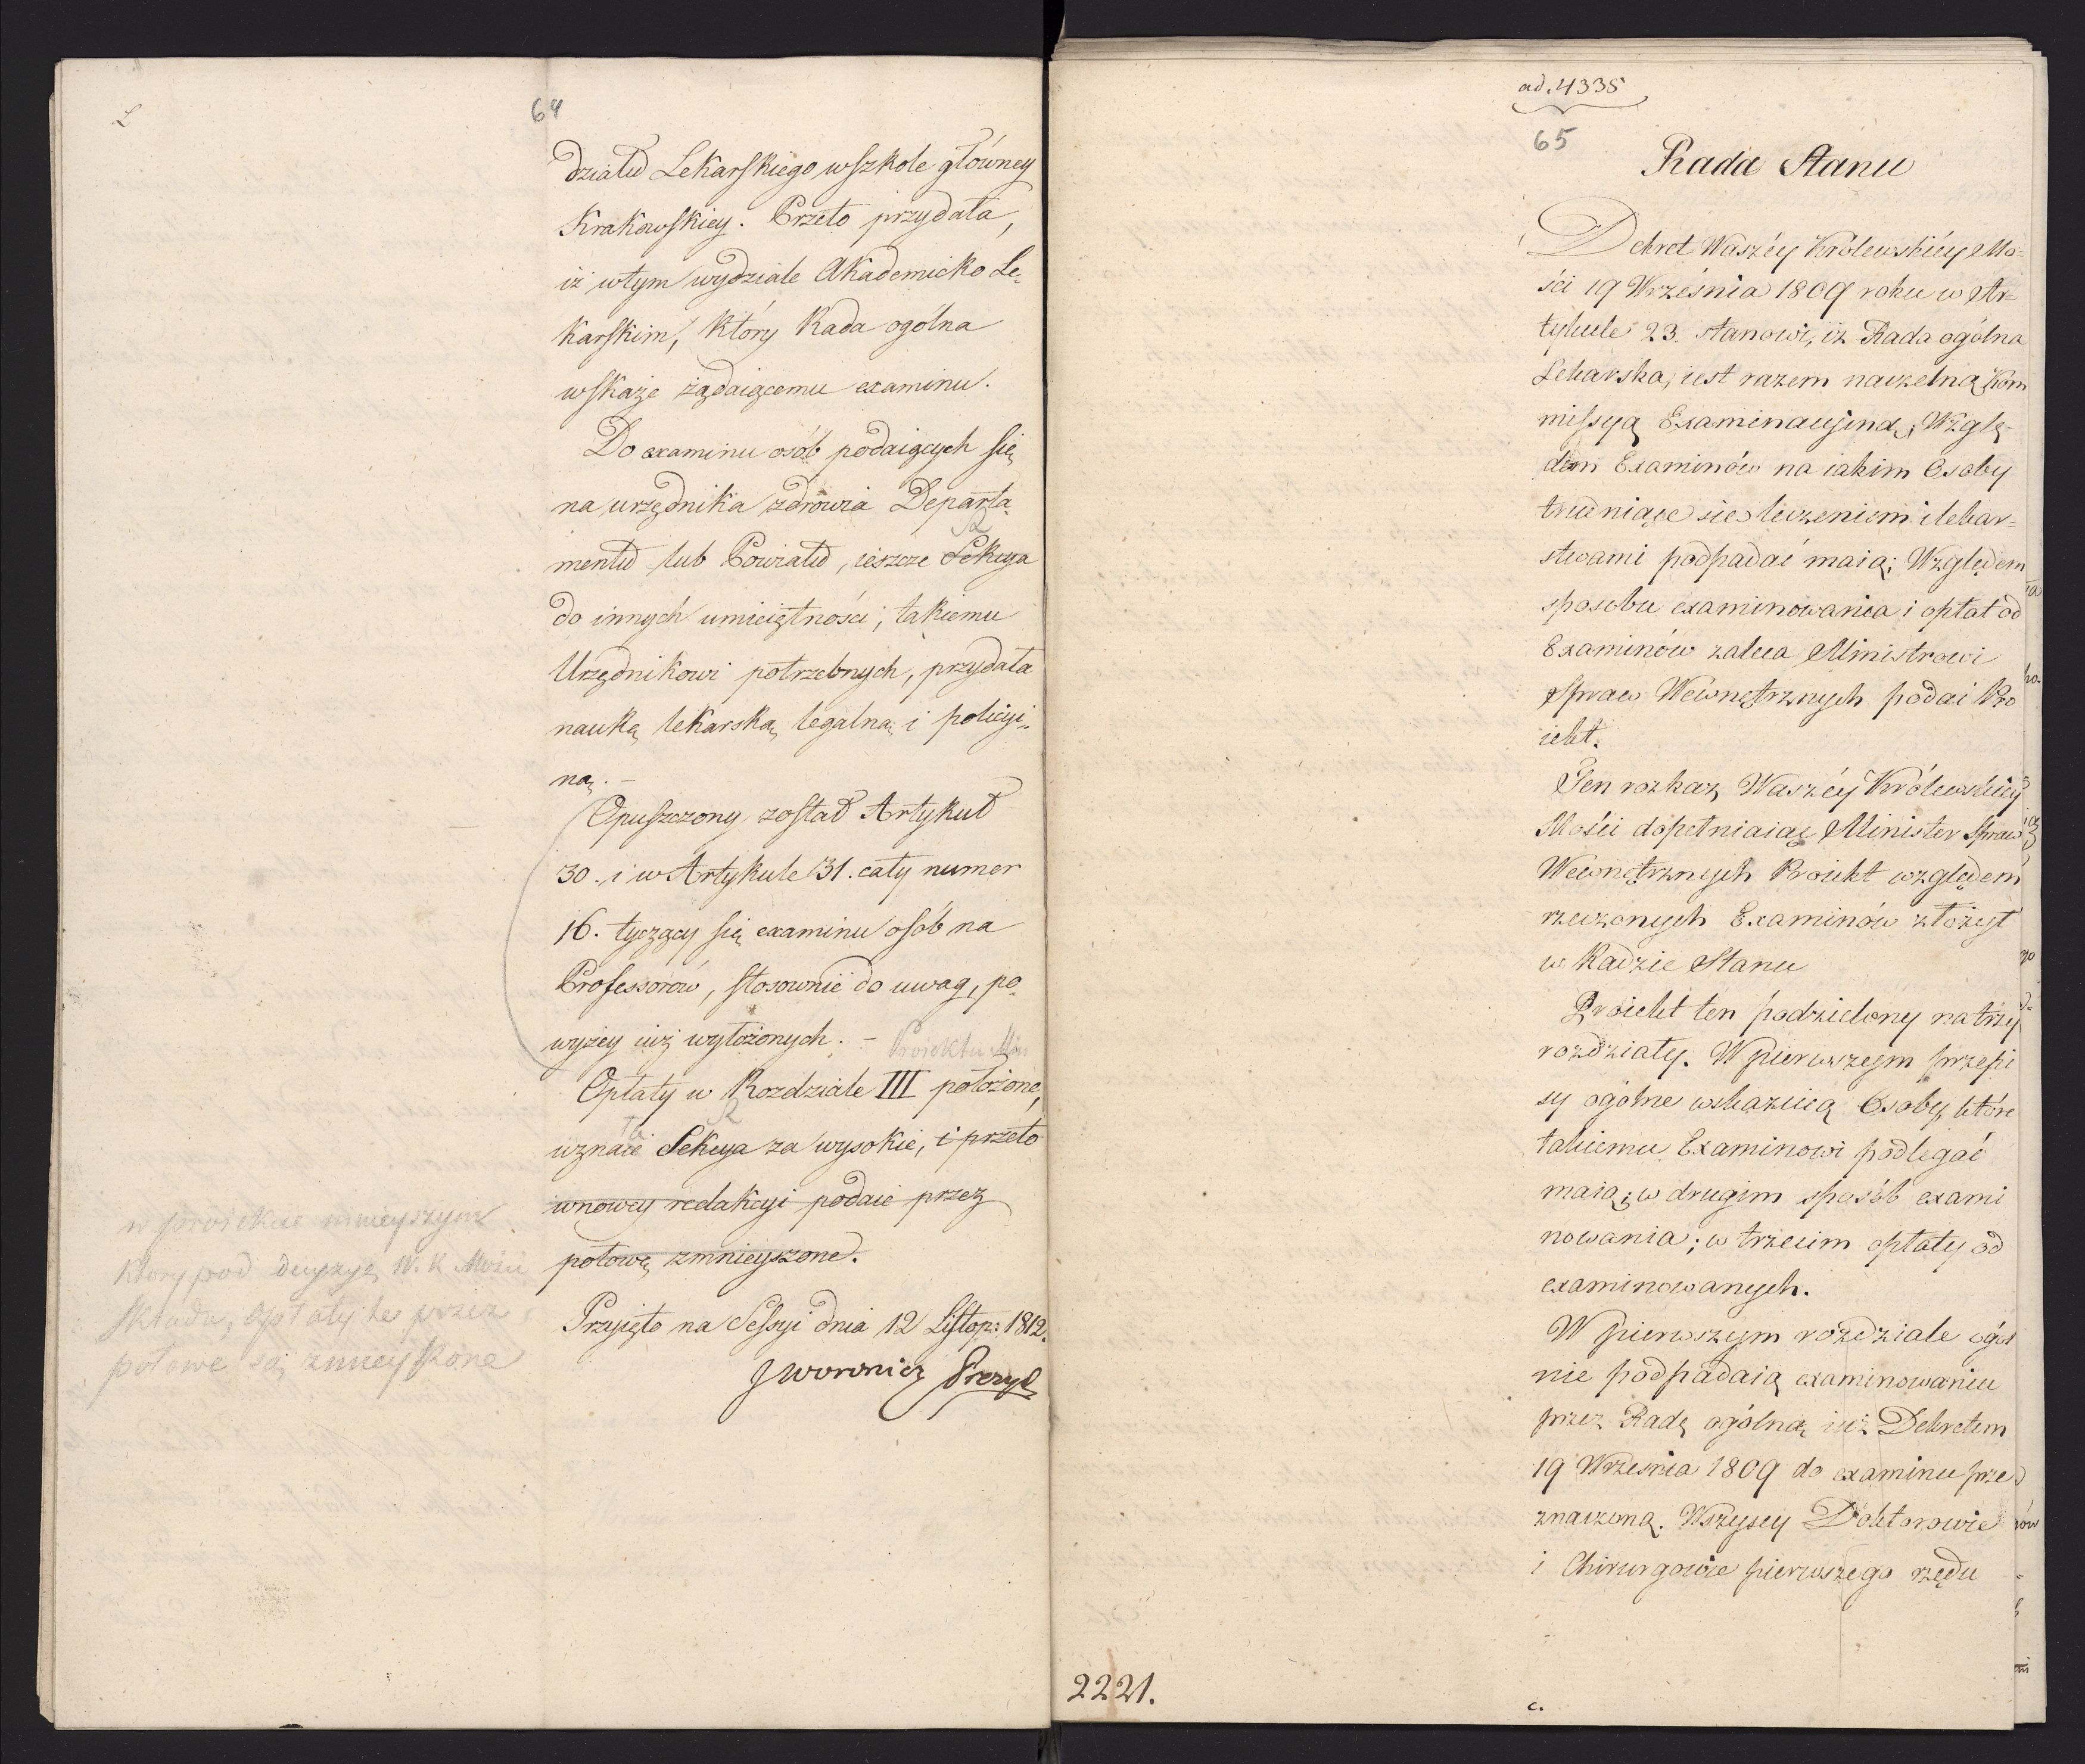 64
działu Lekarskiego w Szkole główney
Krakowskiey. Przeto przydała,
iż w tym wydziale Akademicko Le-
karskim, który Rada ogólna
wskaże żądaiącemu examinu.
Do examinu osób podaiących się
na urzędnika zdrowia Departa-
mentu lub Powiatu, ieszcze Sekcya
do innych umieiętności, takiemu
Urzędnikowi potrzebnych, przydała
nauką lekarską, legalną i policyi-
ną. –
Opuszczony został Artykuł
30. i w Artykule 31. cały numer
16. tyczący się examinu osób na
Professorów, stosownie do uwag, po-
wyżey iuż wyłożonych. – Proiektu Min
Opłaty w Rozdziale III położone,
uznaie Sekcya za wysokie, i przeto
w nowey redakcyi podaie przez
połowę zmnieyszone.
w proiekcie ninieyszym
który pod decyzyę W. K. Mości
składa, opłaty te przez
połowę są zmnieyszone
Przyięto na Sessyi dnia 12 Listop: 1812.
J Woronicz Prezyd
ad. 4338
65
Rada Stanu
Dekret Waszéy Królewskiéy Mo-
ści 19 Września 1809 roku w Ar-
tykule 23. stanowi, iż Rada ogólna
Lekarska, iest razem naczelną Kom
missyą Examinacyiną; Wzglę-
dem Examinów na iakim Osoby
trudniące się leczeniem i lekar-
stwami podpadać maią; Względem
sposobu examinowania i opłat od
Examinów zaleca Ministrowi
Spraw Wewnętrznych podać Pro
iekt.
Ten rozkaz Waszéy Królewskiéy
Mości dopełniaiąc Minister Spraw
Wewnętrznych Proiekt względem
rzeczonych Examinów złożył
w Radzie Stanu
Proiekt ten podzielony na trzy
rozdziały. W pierwszym przepi
sy ogólne wskazuią Osoby, które
takiemu Examinowi podlegać
maią; w drugim sposób exami
nowania; w trzecim opłaty od
examinowanych.
W pierwszym rozdziale ogól
nie podpadaią examinowaniu
przez Radę ogólną iuż Dekretem
19 Września 1809 do examinu prze
znaczoną. Wszyscy Doktorowie
i Chirurgowie pierwszego rzędu
2221.
c.